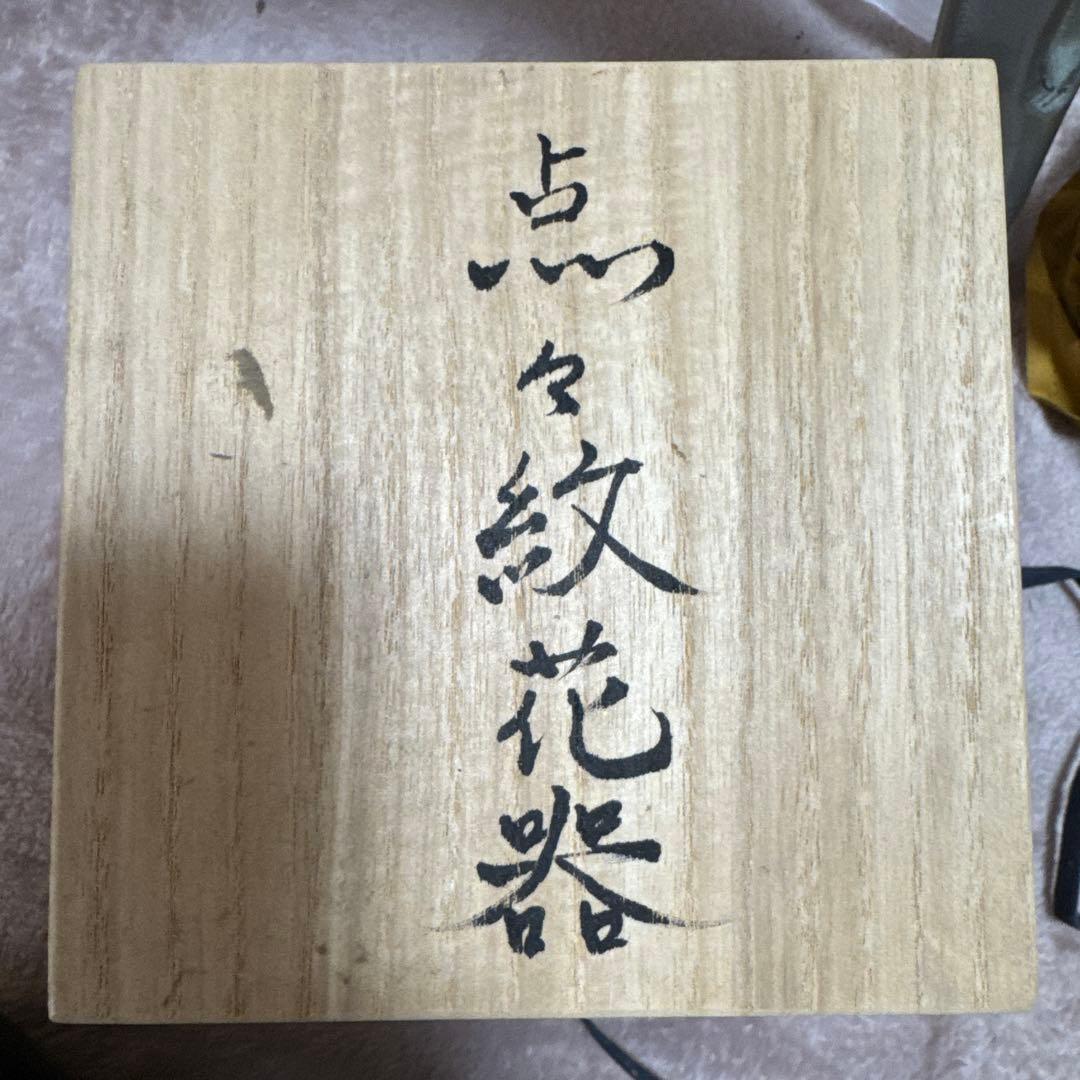 点々紋花器